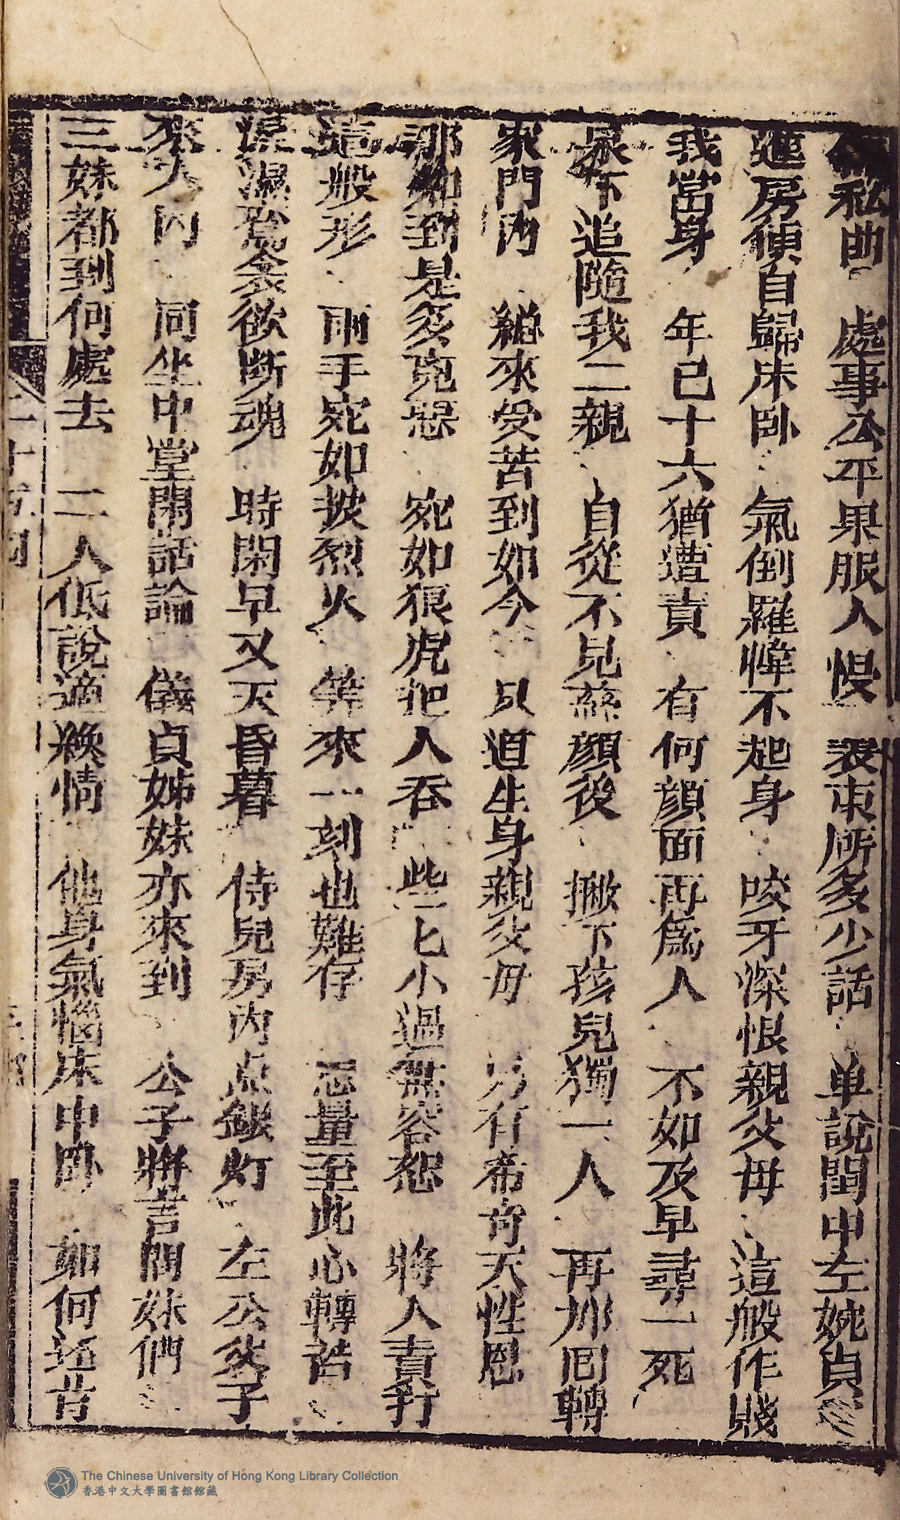 私曲 處事公平果服人 慢表東所多少話 单說閨中左婉貞
進房便自歸床卧 氣倒羅幃不起身 咬牙深恨親父母 這般作賤
我當身 年已十六猶遭責 有何顔面再爲人 不如及早尋一死
泉下追隨我二親 自從不見慈顔後 撇下孩兒獨一人 再加囘轉
家門内 總來受苦到如今 只道生身親父母 另有希奇天性恩
那知到是多兇惡 宛如狼虎把人吞 些匕小過無容恕 將人責打
這般形 兩手宛如披烈火 等來一刻也難存 思量至此心轉苦
淚濕鴛衾欲断魂 時間早又天昏暮 侍兒房内点銀灯 左公父子
來入内 同坐中堂閒話論 儀貞姊妹亦來到 公子將言問妹們
三妹都到何處去 二人低說適纔情 他身氣惱床中卧 如何还肯
二十五囘